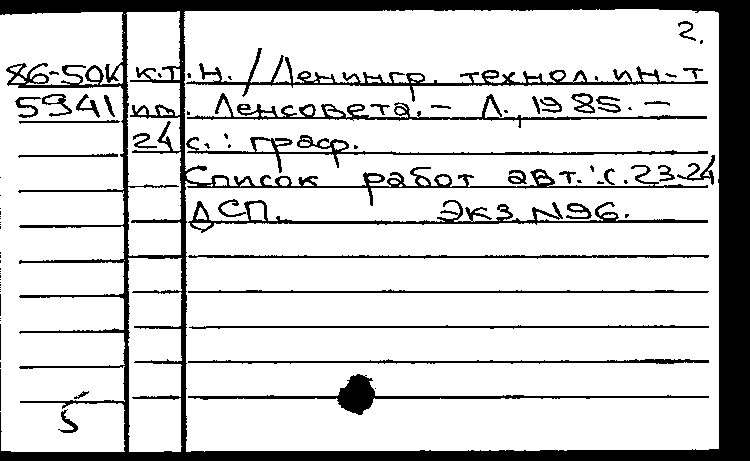 2.
86-50к к.т.н. / Ленингр. технол. ин-т
5941 им. Ленсовета. - Л., 1985. -
24 с. : граф.
Список работ авт.: с. 23-24
ДСП. Экз. N96.
5